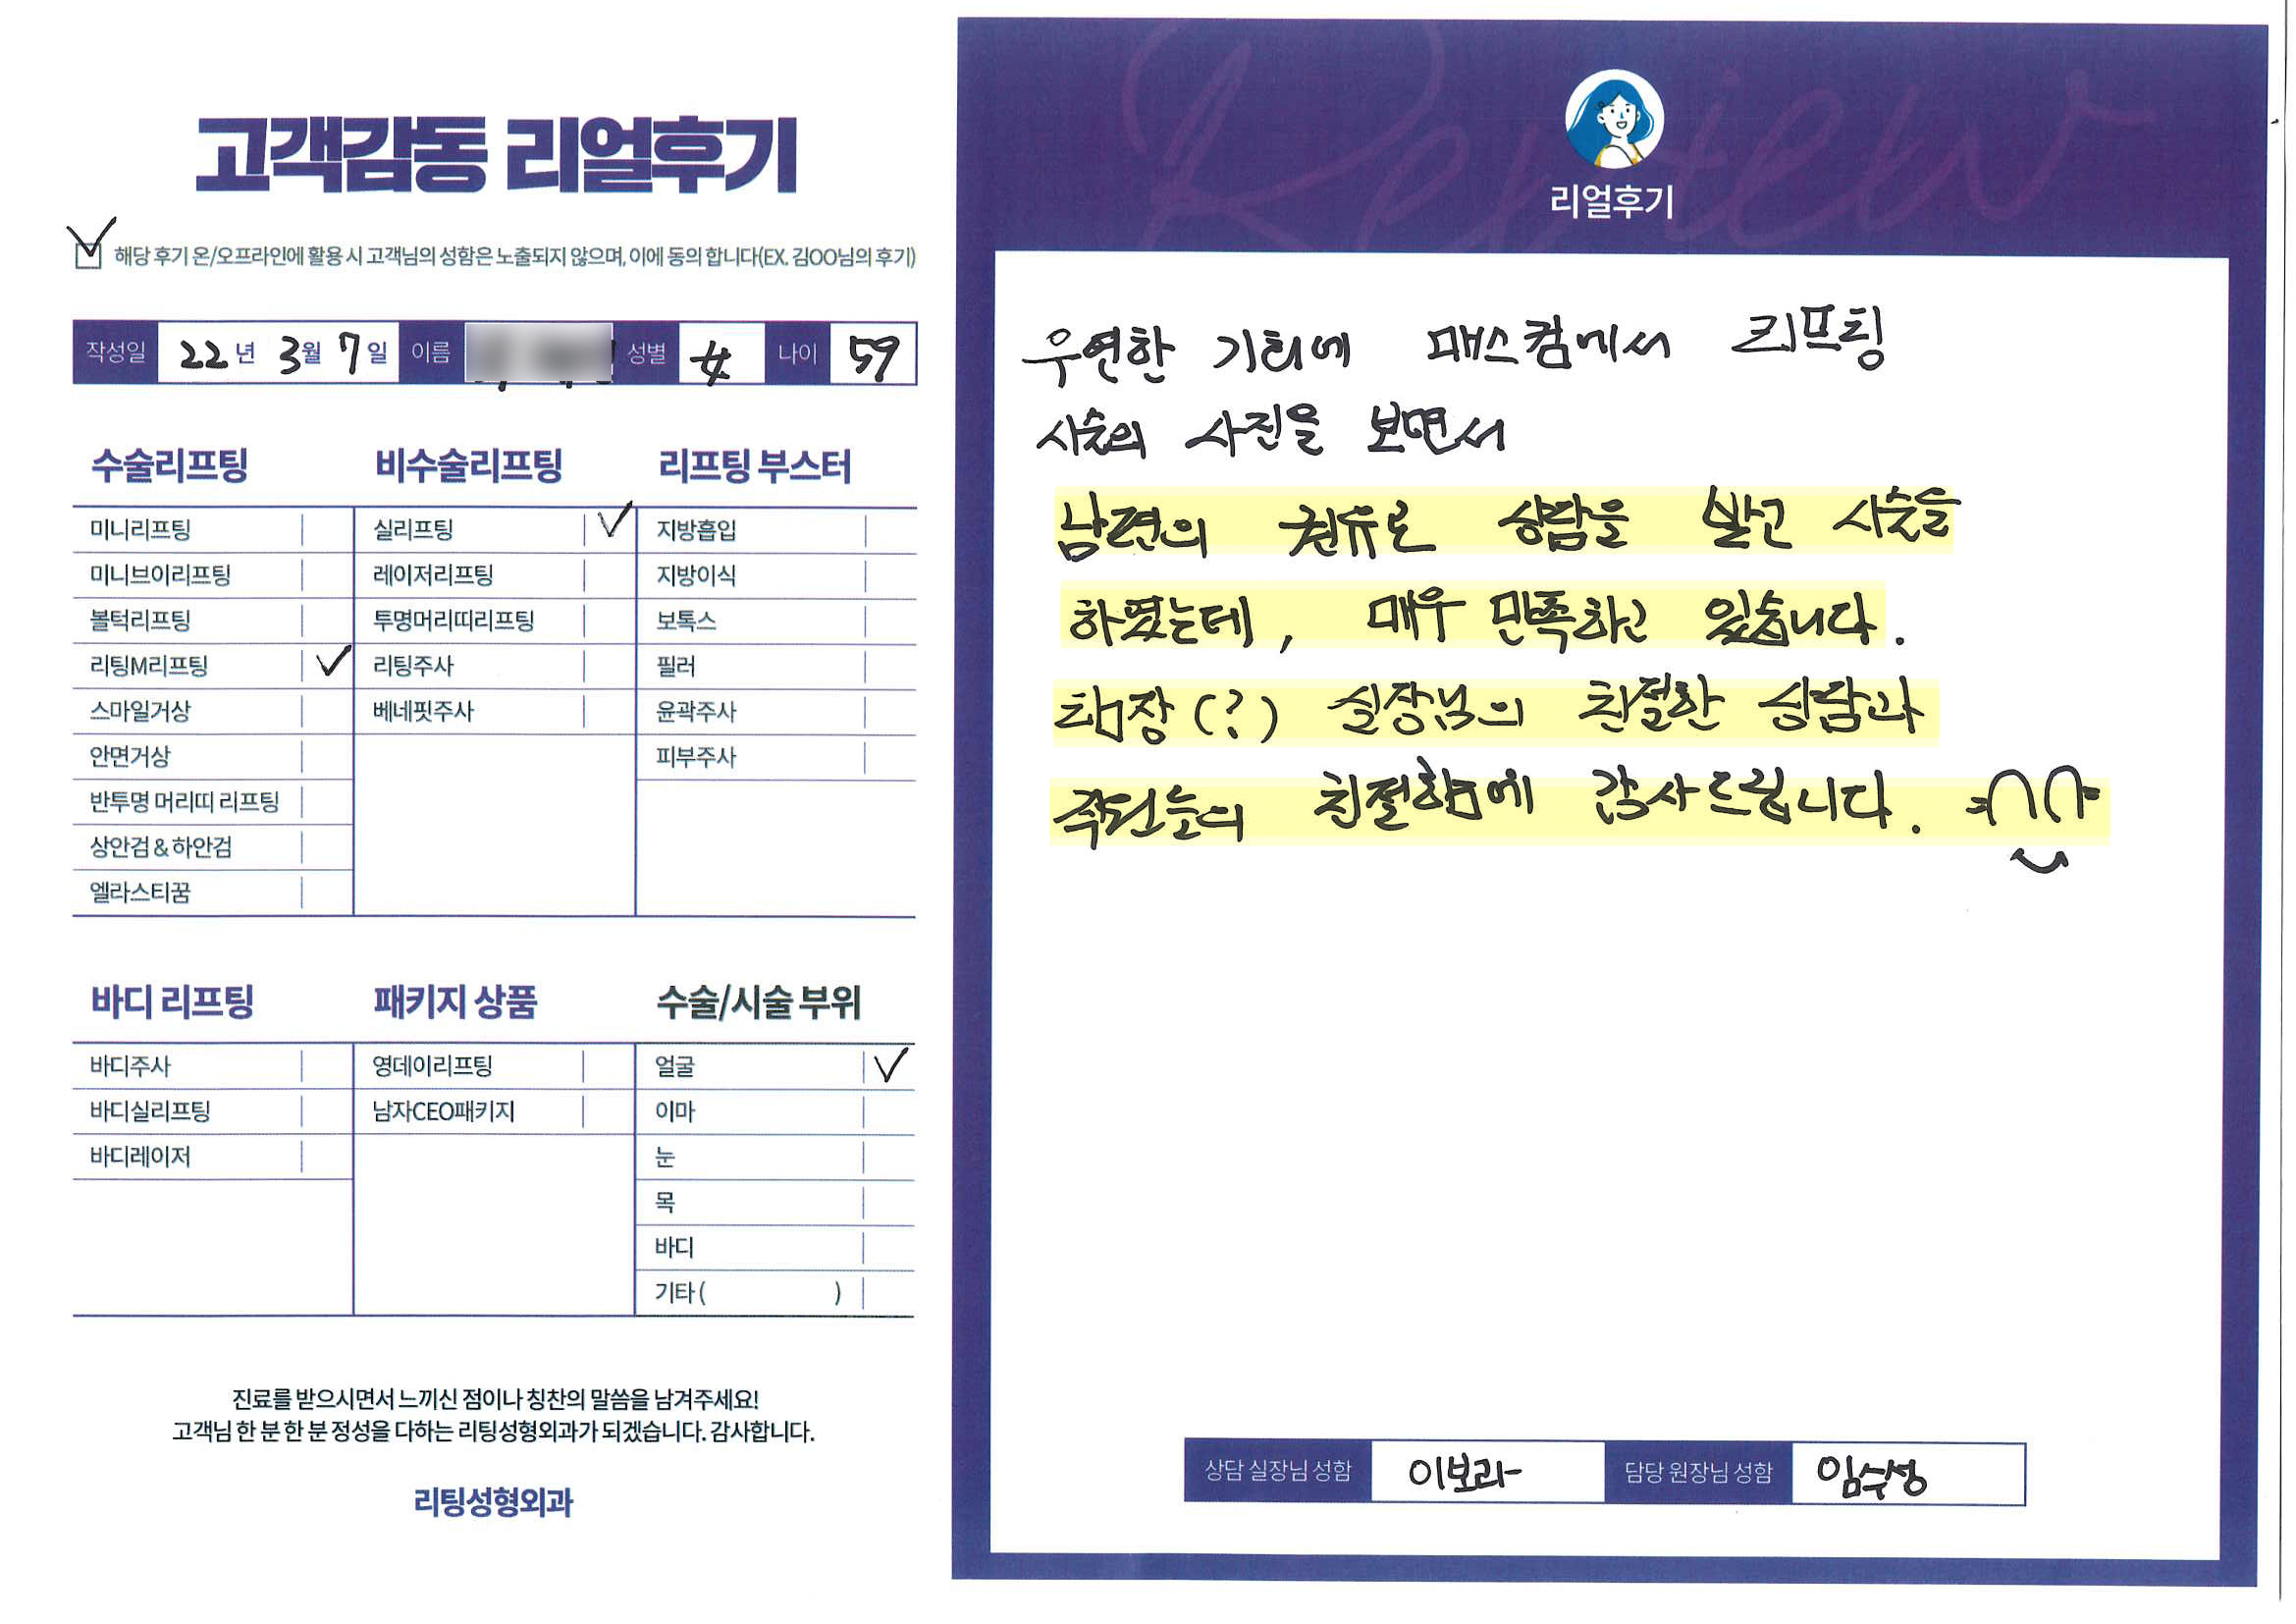 고객감동 리얼후기
해당 후기 온/오프라인에 활용 시 고객님의 성함은 노출되지 않으며, 이에 동의 합니다(EX. 김OO님의 후기)
작성일 22년 3월 7일 이름 성별 女 나이 59
수술리프팅
미니리프팅
미니브이리프팅
볼턱리프팅
리팅M리프팅
스마일거상
안면거상
반투명 머리띠 리프팅
상안검 & 하안검
엘라스티꿈
비수술리프팅
실리프팅
레이저리프팅
투명머리띠리프팅
리팅주사
베네핏주사
리프팅 부스터
지방흡입
지방이식
보톡스
필러
윤곽주사
피부주사
바디 리프팅
바디주사
바디실리프팅
바디레이저
패키지 상품
영데이리프팅
남자CEO패키지
수술/시술 부위
얼굴
이마
눈
목
바디
기타 ( )
진료를 받으시면서 느끼신 점이나 칭찬의 말씀을 남겨주세요!
고객님 한 분 한 분 정성을 다하는 리팅성형외과가 되겠습니다. 감사합니다.
리팅성형외과
Review
리얼후기
우연한 기회에 매스컴에서 리프팅
시술의 사진을 보면서
남편의 권유로 상담을 받고 시술을
하였는데, 매우 만족하고 있습니다.
팀장(?) 실장님의 친절한 상담과
직원들의 친절함에 감사드립니다.
상담 실장님 성함 이보라
담당 원장님 성함 임수성